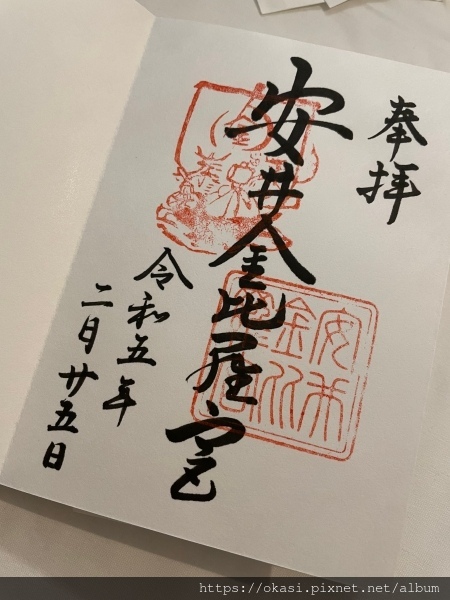 奉拝
安井金比羅宮
令和五年
二月廿五日
安井金比羅宮
https://okasi.pixnet.net/album